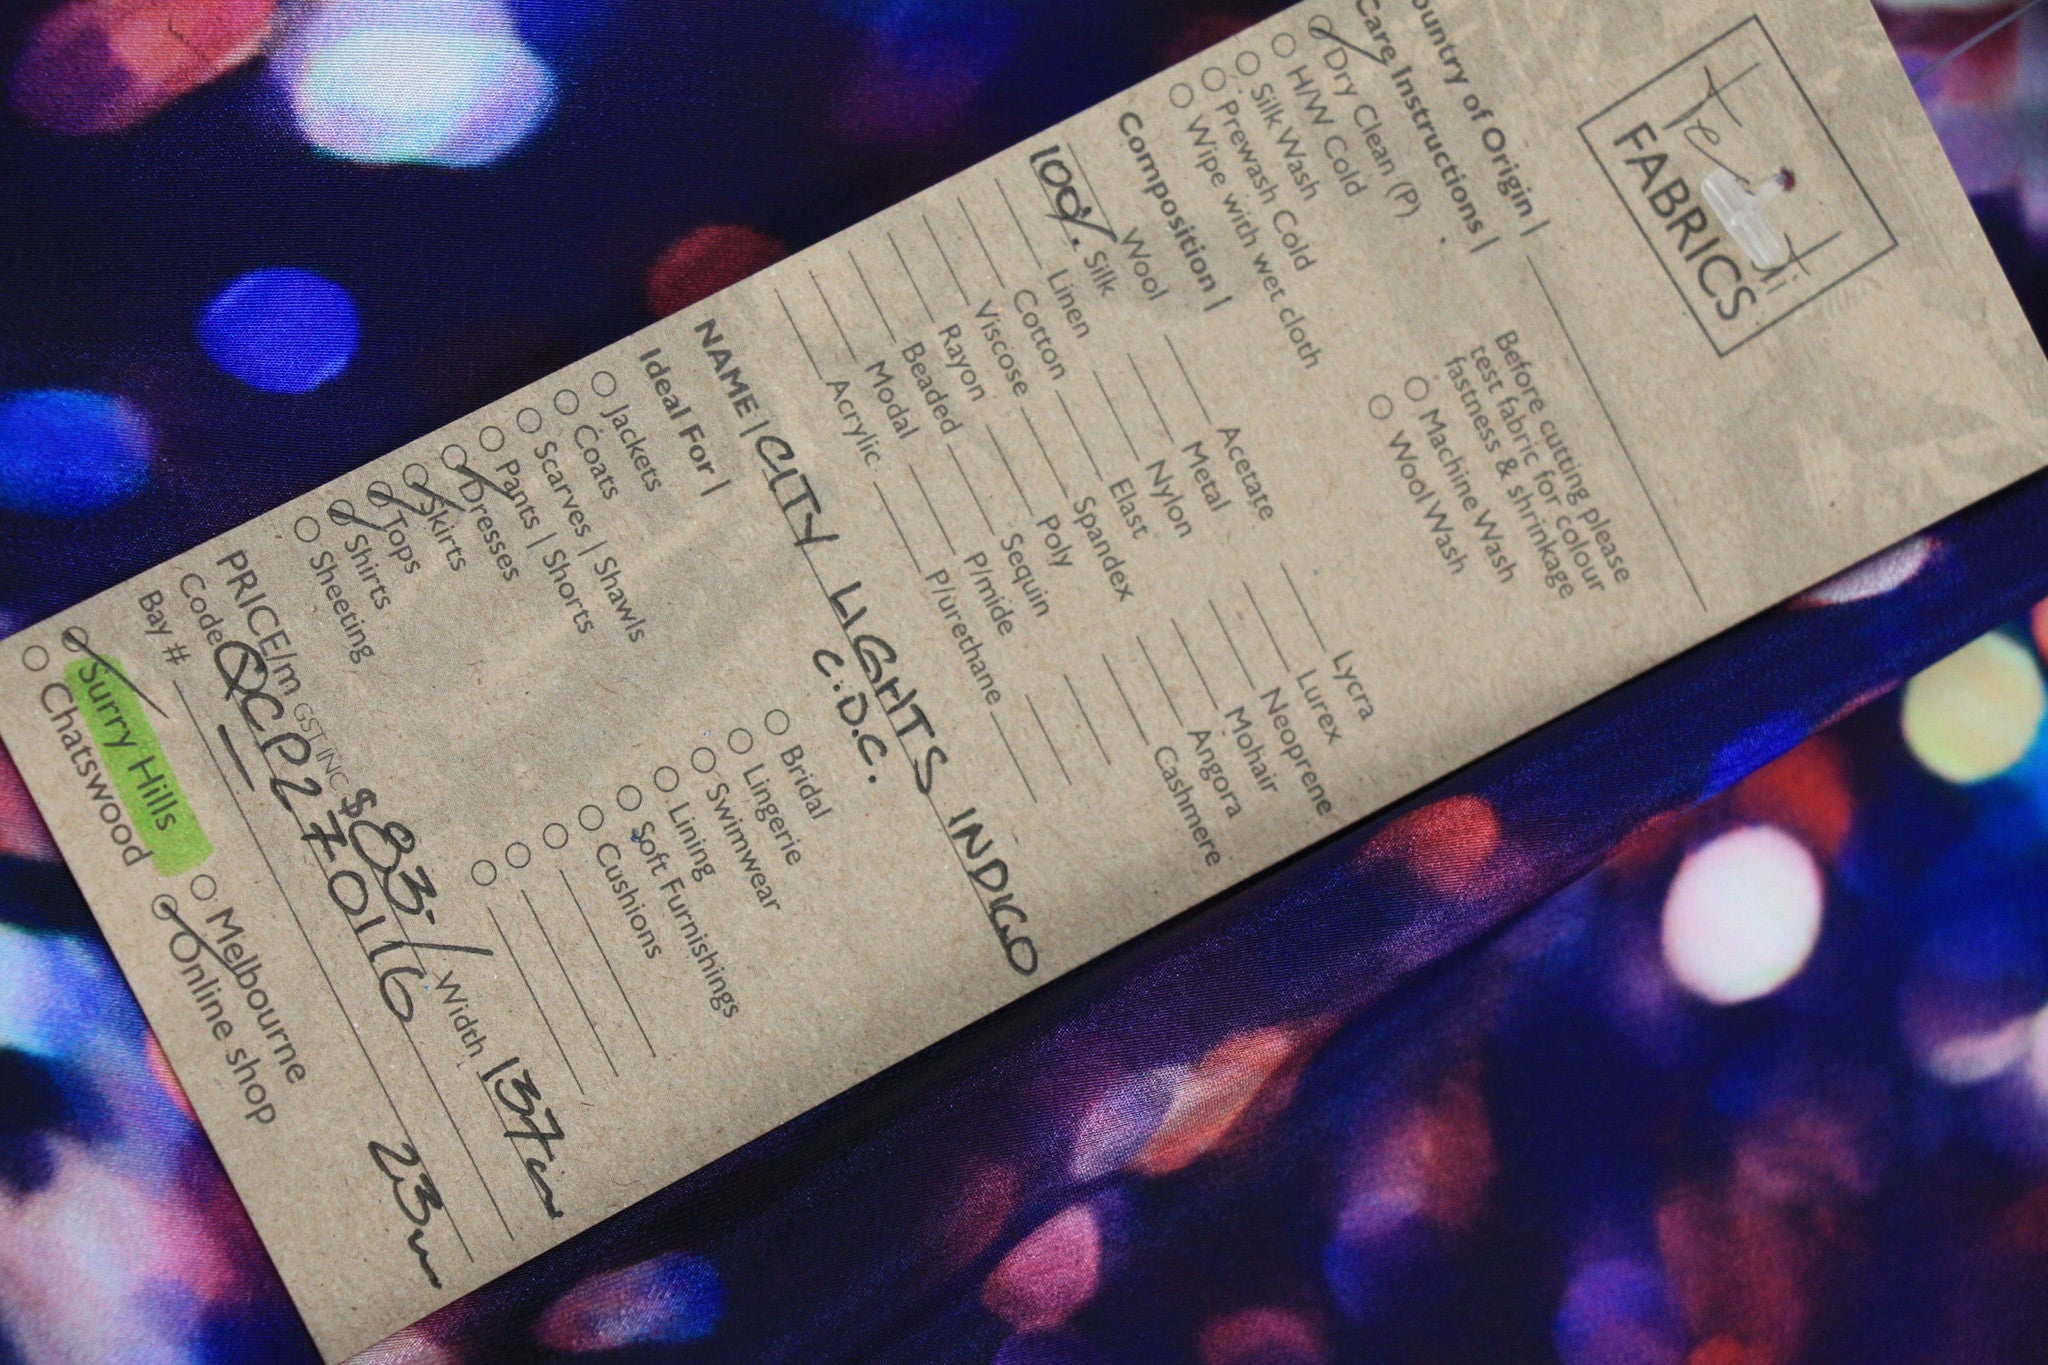 FABRICS
ountry of Origin |
Care Instructions |
Before cutting please
test fabric for colour
fastness & shrinkage
Dry Clean (P)
H/W Cold
Silk Wash
Prewash Cold
Wipe with wet cloth
Machine Wash
Wool Wash
Composition |
Wool
100% Silk
Linen
Cotton
Viscose
Rayon
Beaded
Modal
Acrylic
Acetate
Metal
Nylon
Elast
Spandex
Poly
Sequin
P/mide
P/urethane
Lycra
Lurex
Neoprene
Mohair
Angora
Cashmere
NAME | CITY LIGHTS INDIGO
C.D.C.
Ideal For |
Jackets
Coats
Scarves | Shawls
Pants | Shorts
Dresses
Skirts
Tops
Shirts
Sheeting
Bridal
Lingerie
Swimwear
Lining
Soft Furnishings
Cushions
PRICE/m GST INC $83./ Width 137cm
Code QCP270116 23m
Bay #
Surry Hills
Chatswood
Melbourne
Online shop